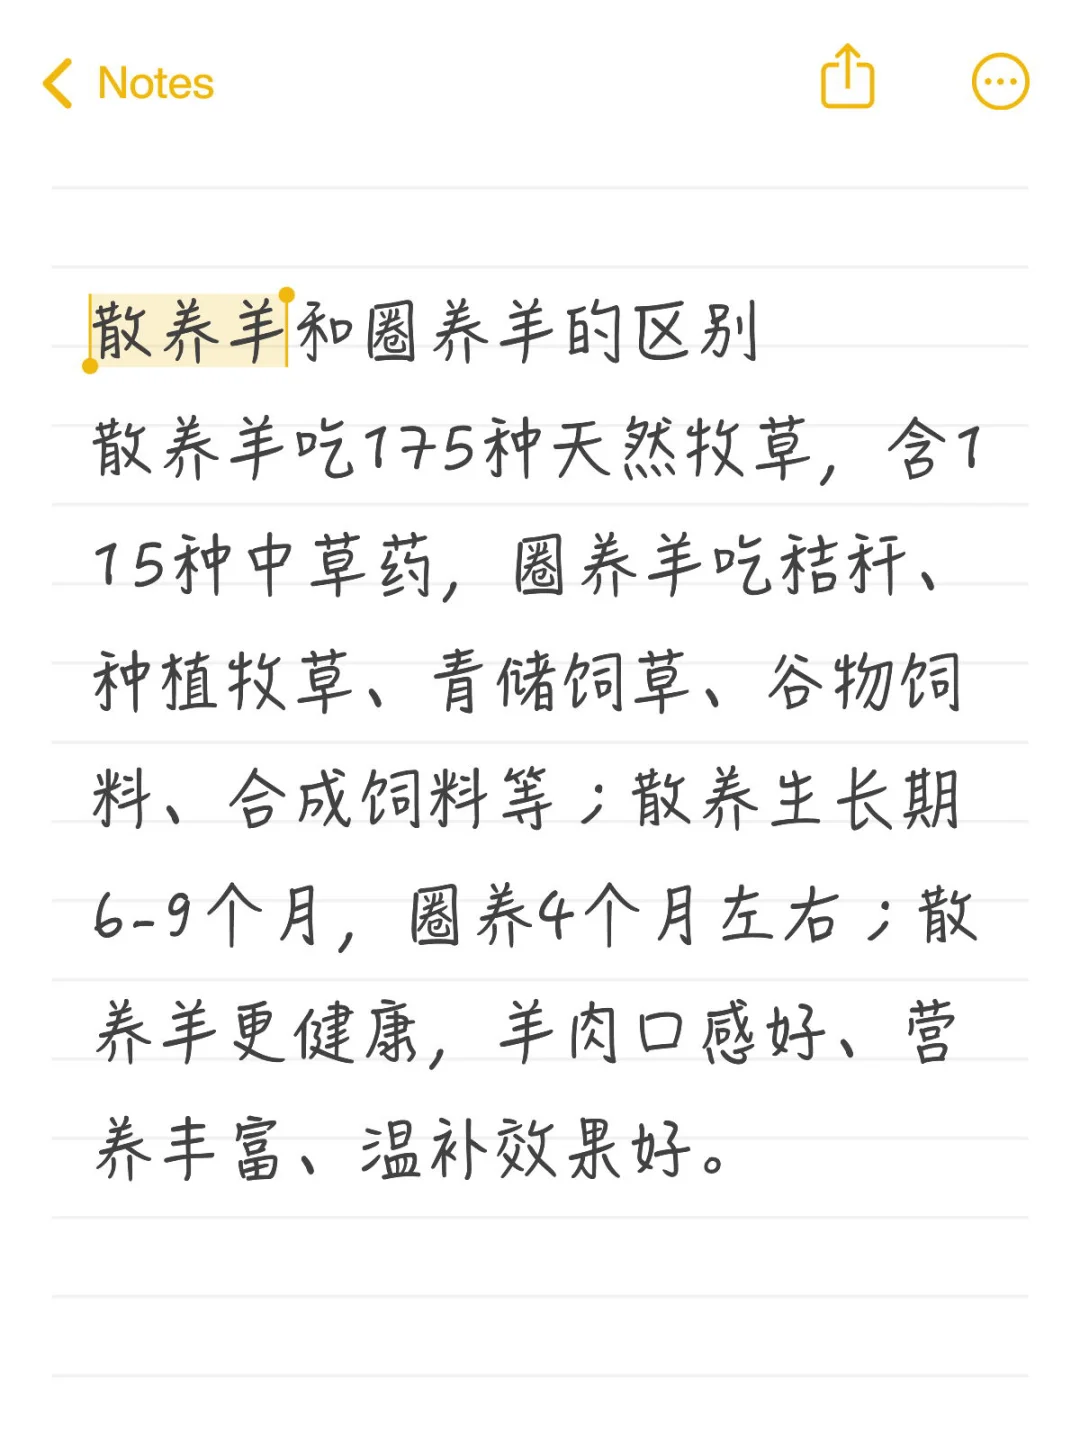 Notes
散养羊和圈养羊的区别
散养羊吃175种天然牧草，含1
15种中草药，圈养羊吃秸秆、
种植牧草、青储饲草、谷物饲
料、合成饲料等；散养生长期
6-9个月，圈养4个月左右；散
养羊更健康，羊肉口感好、营
养丰富、温补效果好。